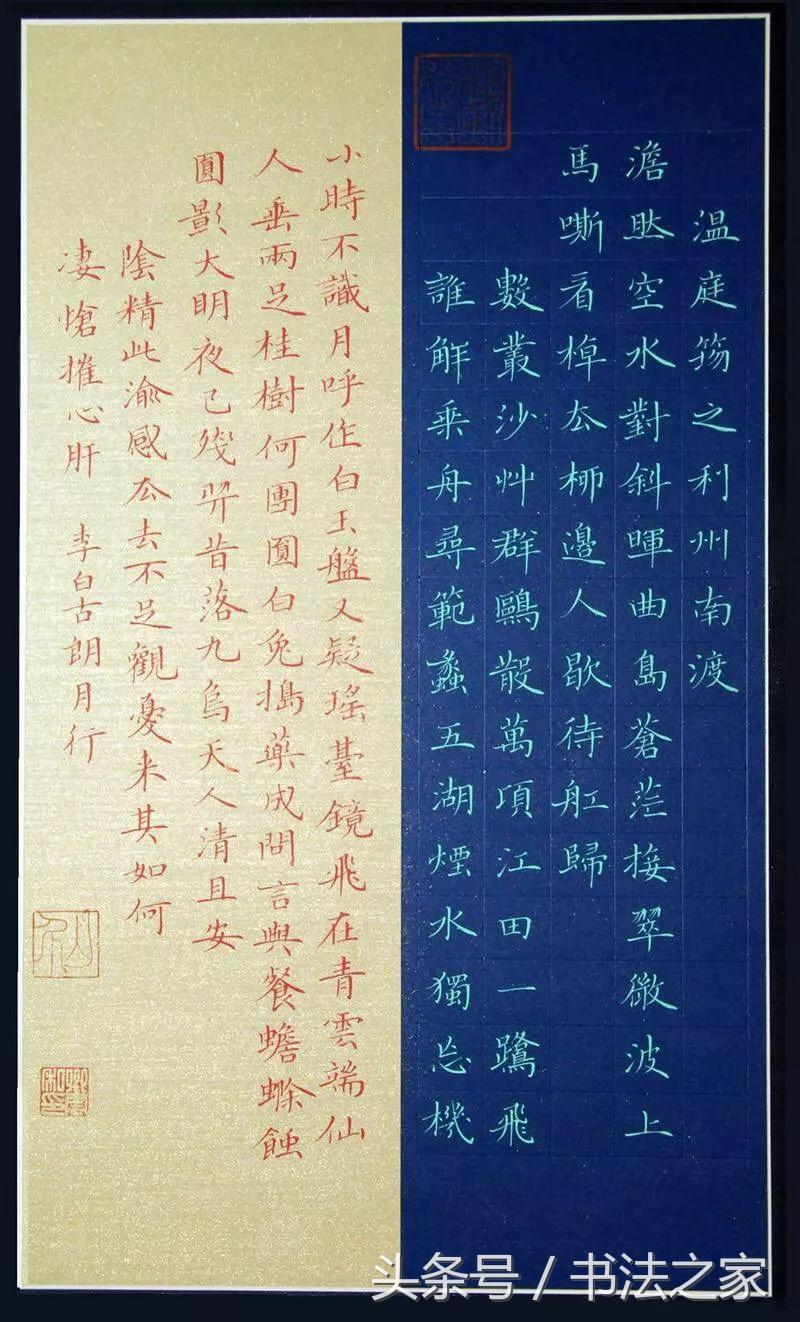 温庭筠之利州南渡
澹肰空水對斜暉曲島蒼茫接翠微波上
馬嘶看棹厺柳邊人歇待舡歸
數叢沙艸群鷗散萬項江田一鷺飛
誰解乗舟尋範蠡五湖煙水獨忘機
小時不識月呼作白玉盤又疑瑤臺鏡飛在青雲端仙
人垂兩足桂樹何團圓白兔搗藥成問言與餐蟾蜍蝕
圓影大明夜已殘羿昔落九烏天人清且安
陰精此渝感厺去不足觀憂来其如何
凄愴摧心肝 李白古朗月行
头条号 / 书法之家